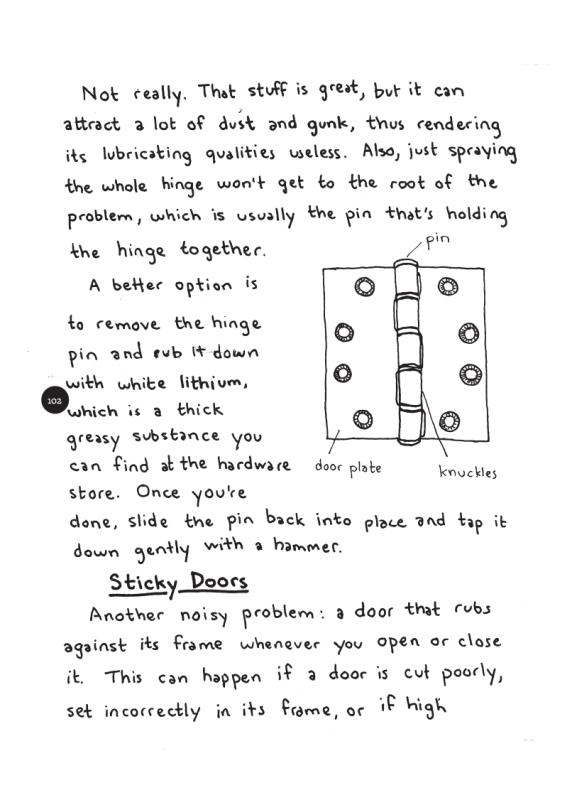 Not really. That stuff is great, but it can
attract a lot of dust and gunk, thus rendering
its lubricating qualities useless. Also, just spraying
the whole hinge won't get to the root of the
problem, which is usually the pin that's holding
the hinge together.
pin
A better option is
to remove the hinge
pin and rub it down
with white lithium,
102
which is a thick
greasy substance you
can find at the hardware
store. Once you're
door plate
knuckles
done, slide the pin back into place and tap it
down gently with a hammer.
Sticky Doors
Another noisy problem: a door that rubs
against its frame whenever you open or close
it. This can happen if a door is cut poorly,
set incorrectly in its frame, or if high